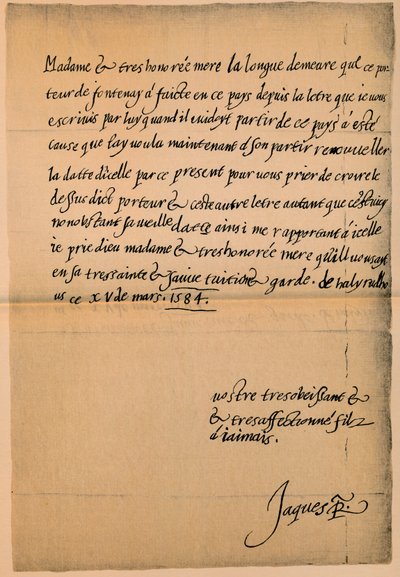 Madame & treshonorée mere la longue demeure que ce por
teur de fontenay a faicte en ce pays depuis la letre que ie vous
escriuis par luy quand il cuidoyt partir de ce pays a esté
cause que iay voulu maintenant a son partir renouueller
la datte dicelle par ce present pour vous prier de croire le
dessus dict porteur & ceste autre letre autant que
nonobstant sa vieille datte ainsi me rapportant a icelle
ie prie dieu madame & treshonorée mere quil vous ayt
en sa tressaincte & tuition & garde. de halyrudho
us ce xv de mars. 1584.
vostre tresobeissant &
& tresaffectionné filz
a iaimais.
Jaques R.